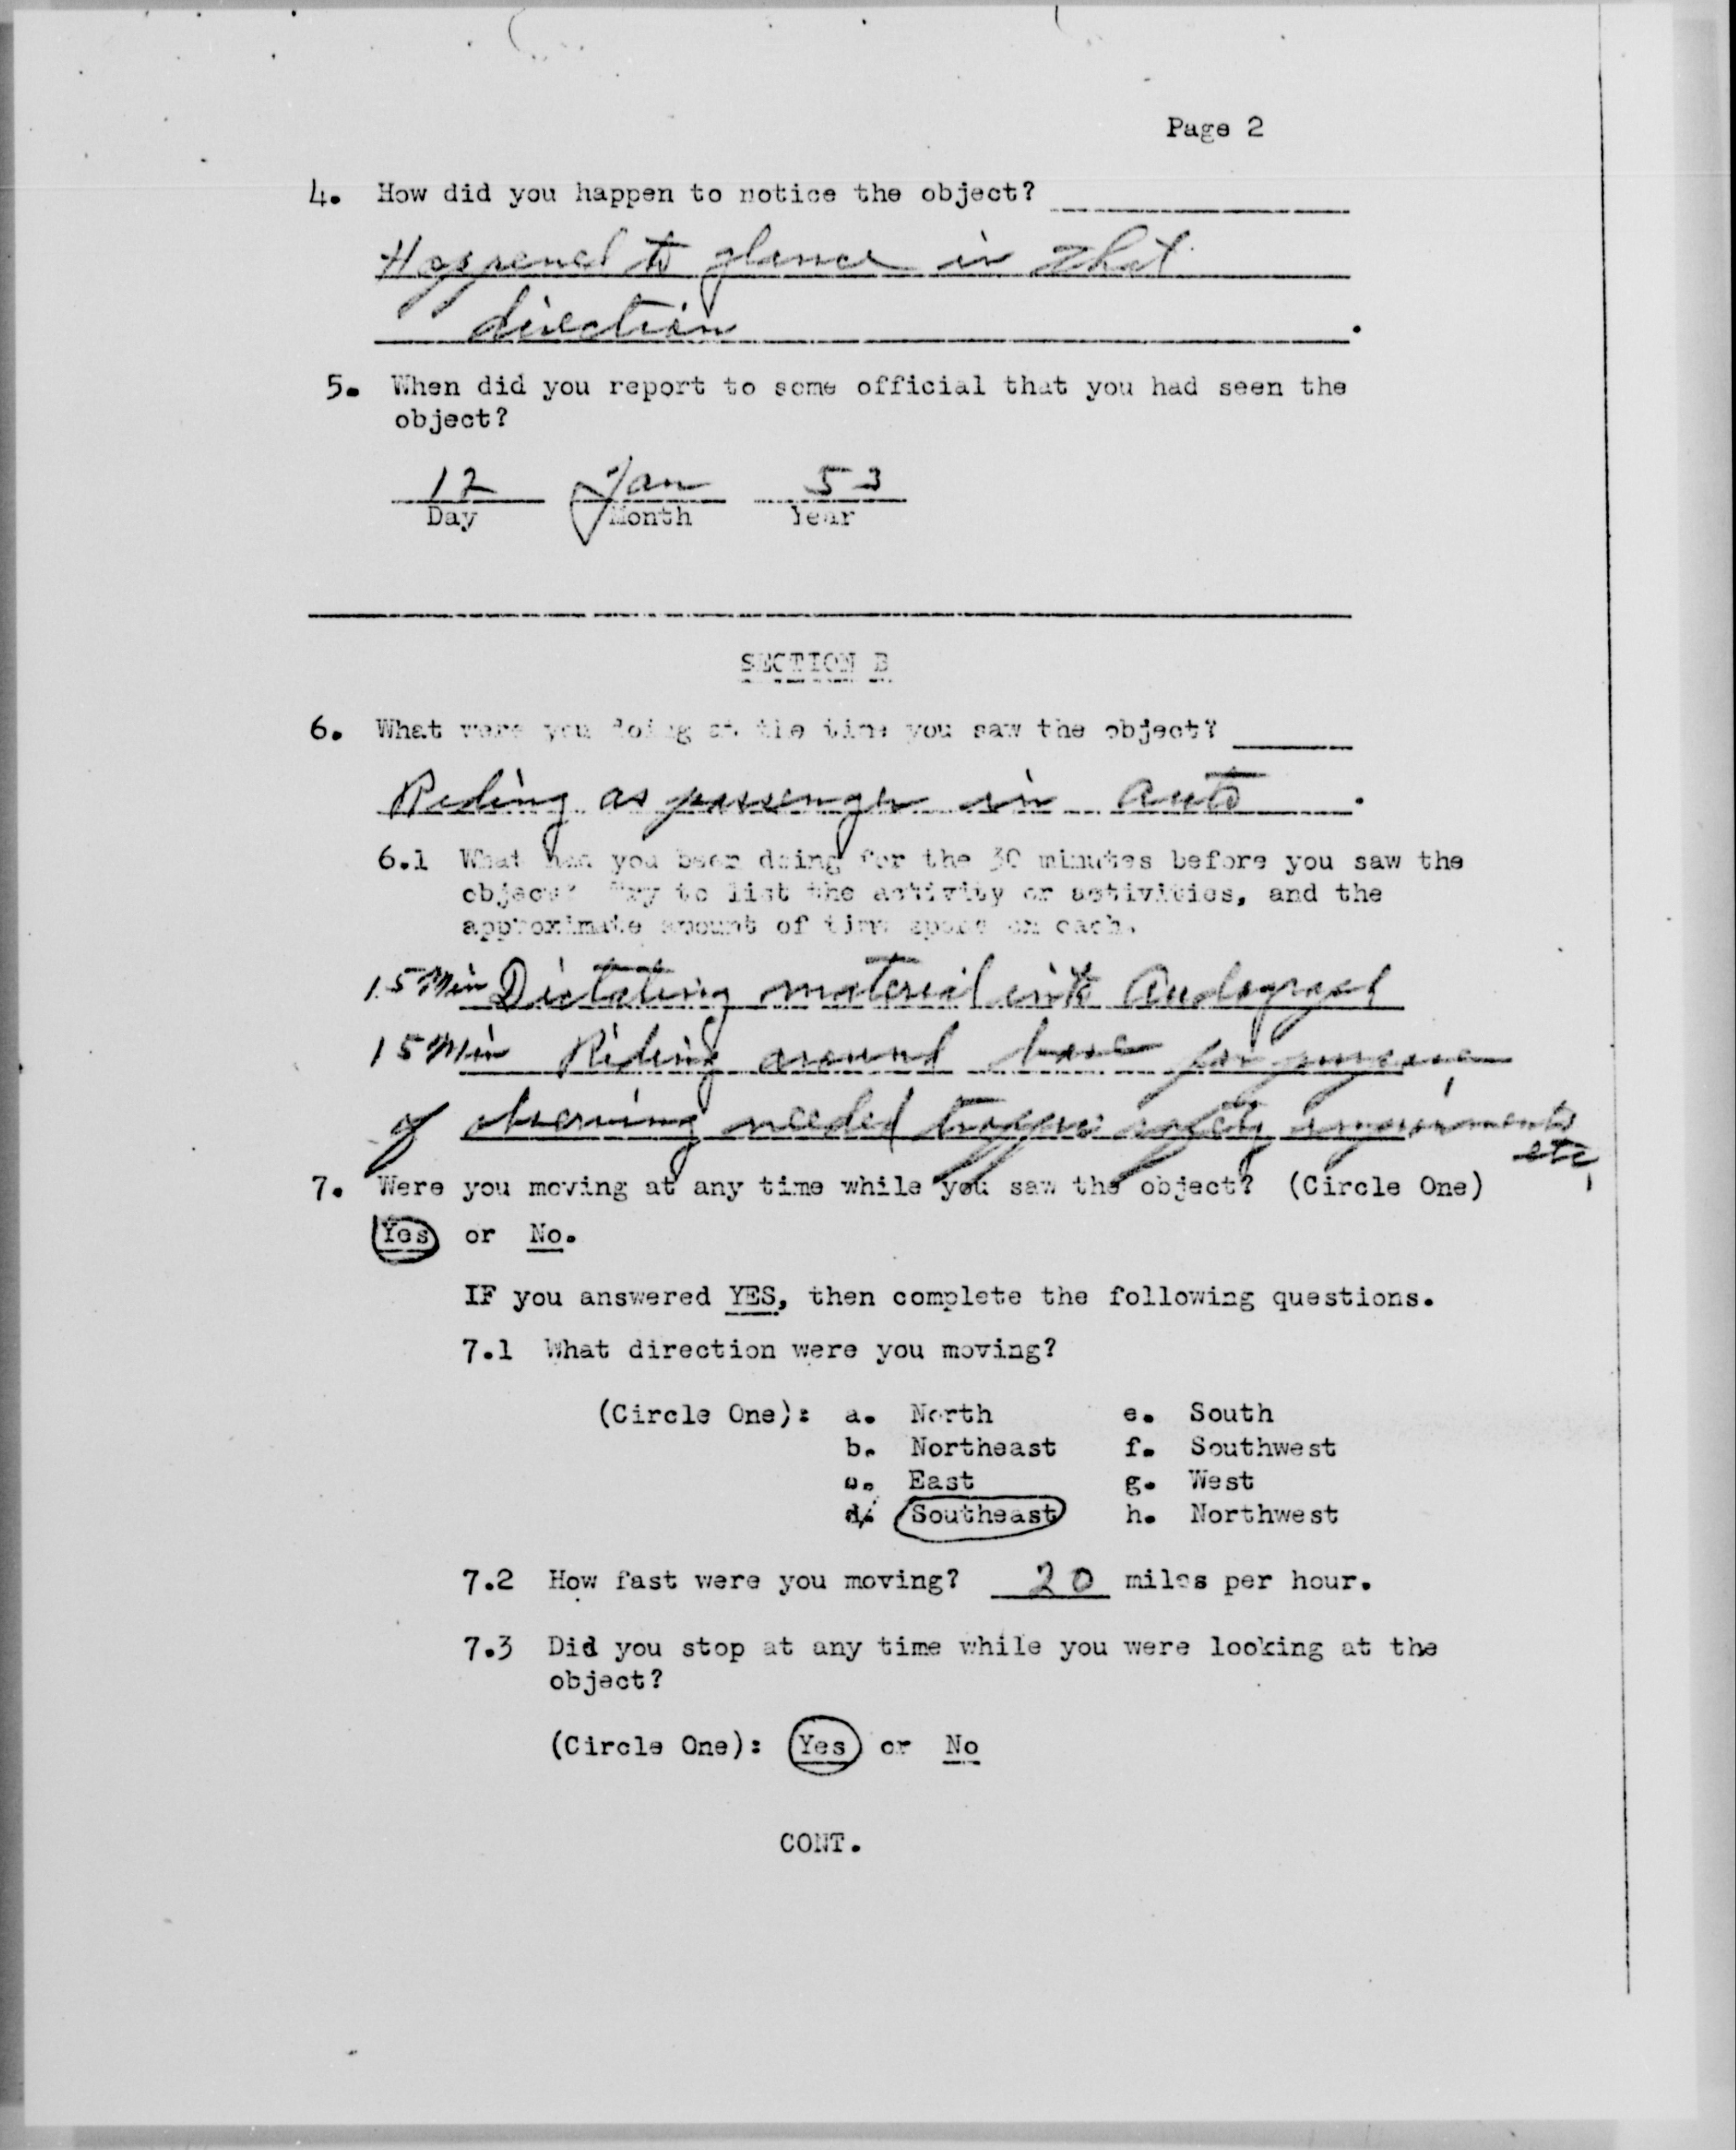 Page 2
4. How did you happen to notice the object?
Happened to glance in that
direction .
5. When did you report to some official that you had seen the
object?
12 Jan 53
Day Month Year
SECTION B
6. What were you doing at the time you saw the object?
Riding as passenger in auto .
6.1 What had you been doing for the 30 minutes before you saw the
object? Try to list the activity or activities, and the
approximate amount of time spent on each.
15 Min Dictating material into Audograph
15 Min Riding around base for purpose
of observing needed traffic safety improvements
etc
7. Were you moving at any time while you saw the object? (Circle One)
Yes or No.
IF you answered YES, then complete the following questions.
7.1 What direction were you moving?
(Circle One): a. North e. South
b. Northeast f. Southwest
c. East g. West
d. Southeast h. Northwest
7.2 How fast were you moving? 20 miles per hour.
7.3 Did you stop at any time while you were looking at the
object?
(Circle One): Yes or No
CONT.